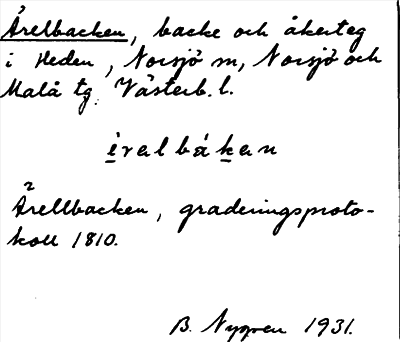 Årelbacken, backe och åkerteg
i Heden, Norsjö sn, Norsjö och
Malå tg. Västerb. l.
årelbákan
2
Årellbacken, graderingsproto-
koll 1810.
B. Nygren 1931.